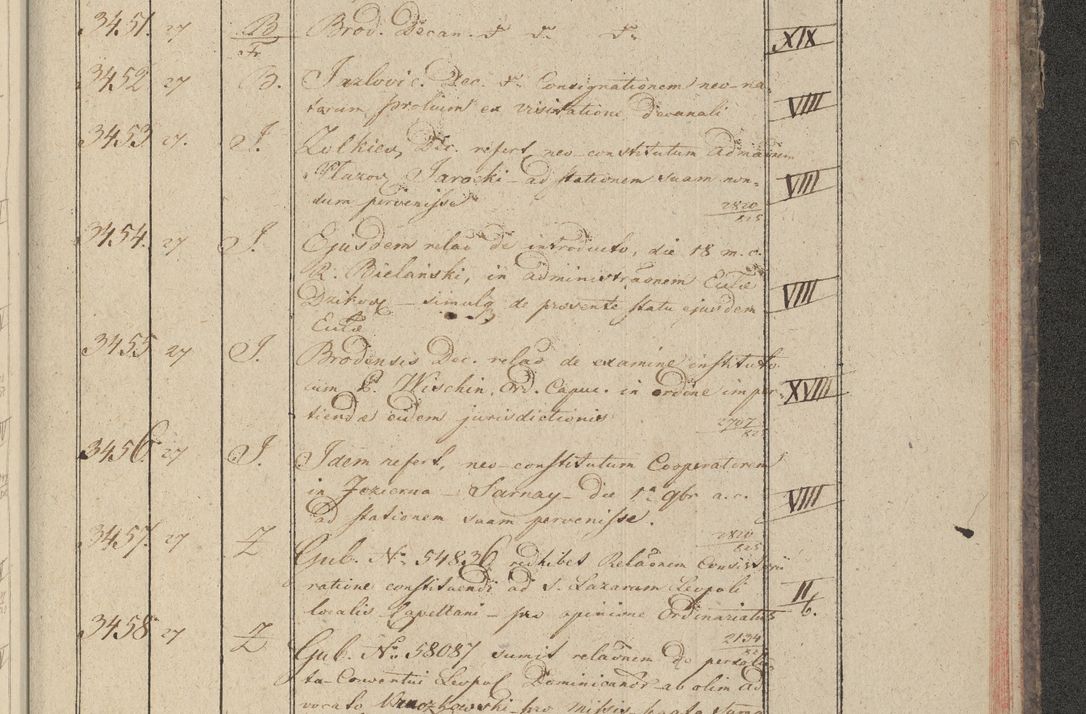 3451. 27 B/Fr Brod. Decan. dt dt. dt. XIX
3452 27 B. Jazlovic. Dec. dt. Consignationem neo-na-
tarum prolium ex visitatione decanali VIII
3453 27. J. Zolkiev, Dec. refert neo-constitutum Adm
Jarocki - ad stationem suam non-
dum pervenisse 2820/825 VIII
3454. 27 J. Ejusdem relaõ de introducto, die 18 m. c.
R. Bielański, in administraõnem Eccłæ
Dzikov - simulq de proventu statu ejusdem VIII
Eccłæ
3455 27 J. Brodensis Dec. relaõ de examine instituto
cum P. Wischin, Ord. Capuc. in ordine imper- XVIII
tiendæ eidem jurisdictionis 2707/825
3456 27 J. Idem refert, neo-constitutum Cooperatorem
in Jezierna - Sarnay - die 1ª 9br a. c. VIII
ad stationem suam pervenisse. 2820/825
3457. 27 Z Gub. Nº 54836 redhibet Relaõnem Consistorii
ratione constituendi ad S. Lazarum Leopoli II
localis Capellani - pro opinione Ordinariatus b.
3458 27 Z Gub. Nº 58087 sumit relaõnem de persolu- 2134
ta Conventui Leopol Dominicanor ab olim Ad
vocato pro missis